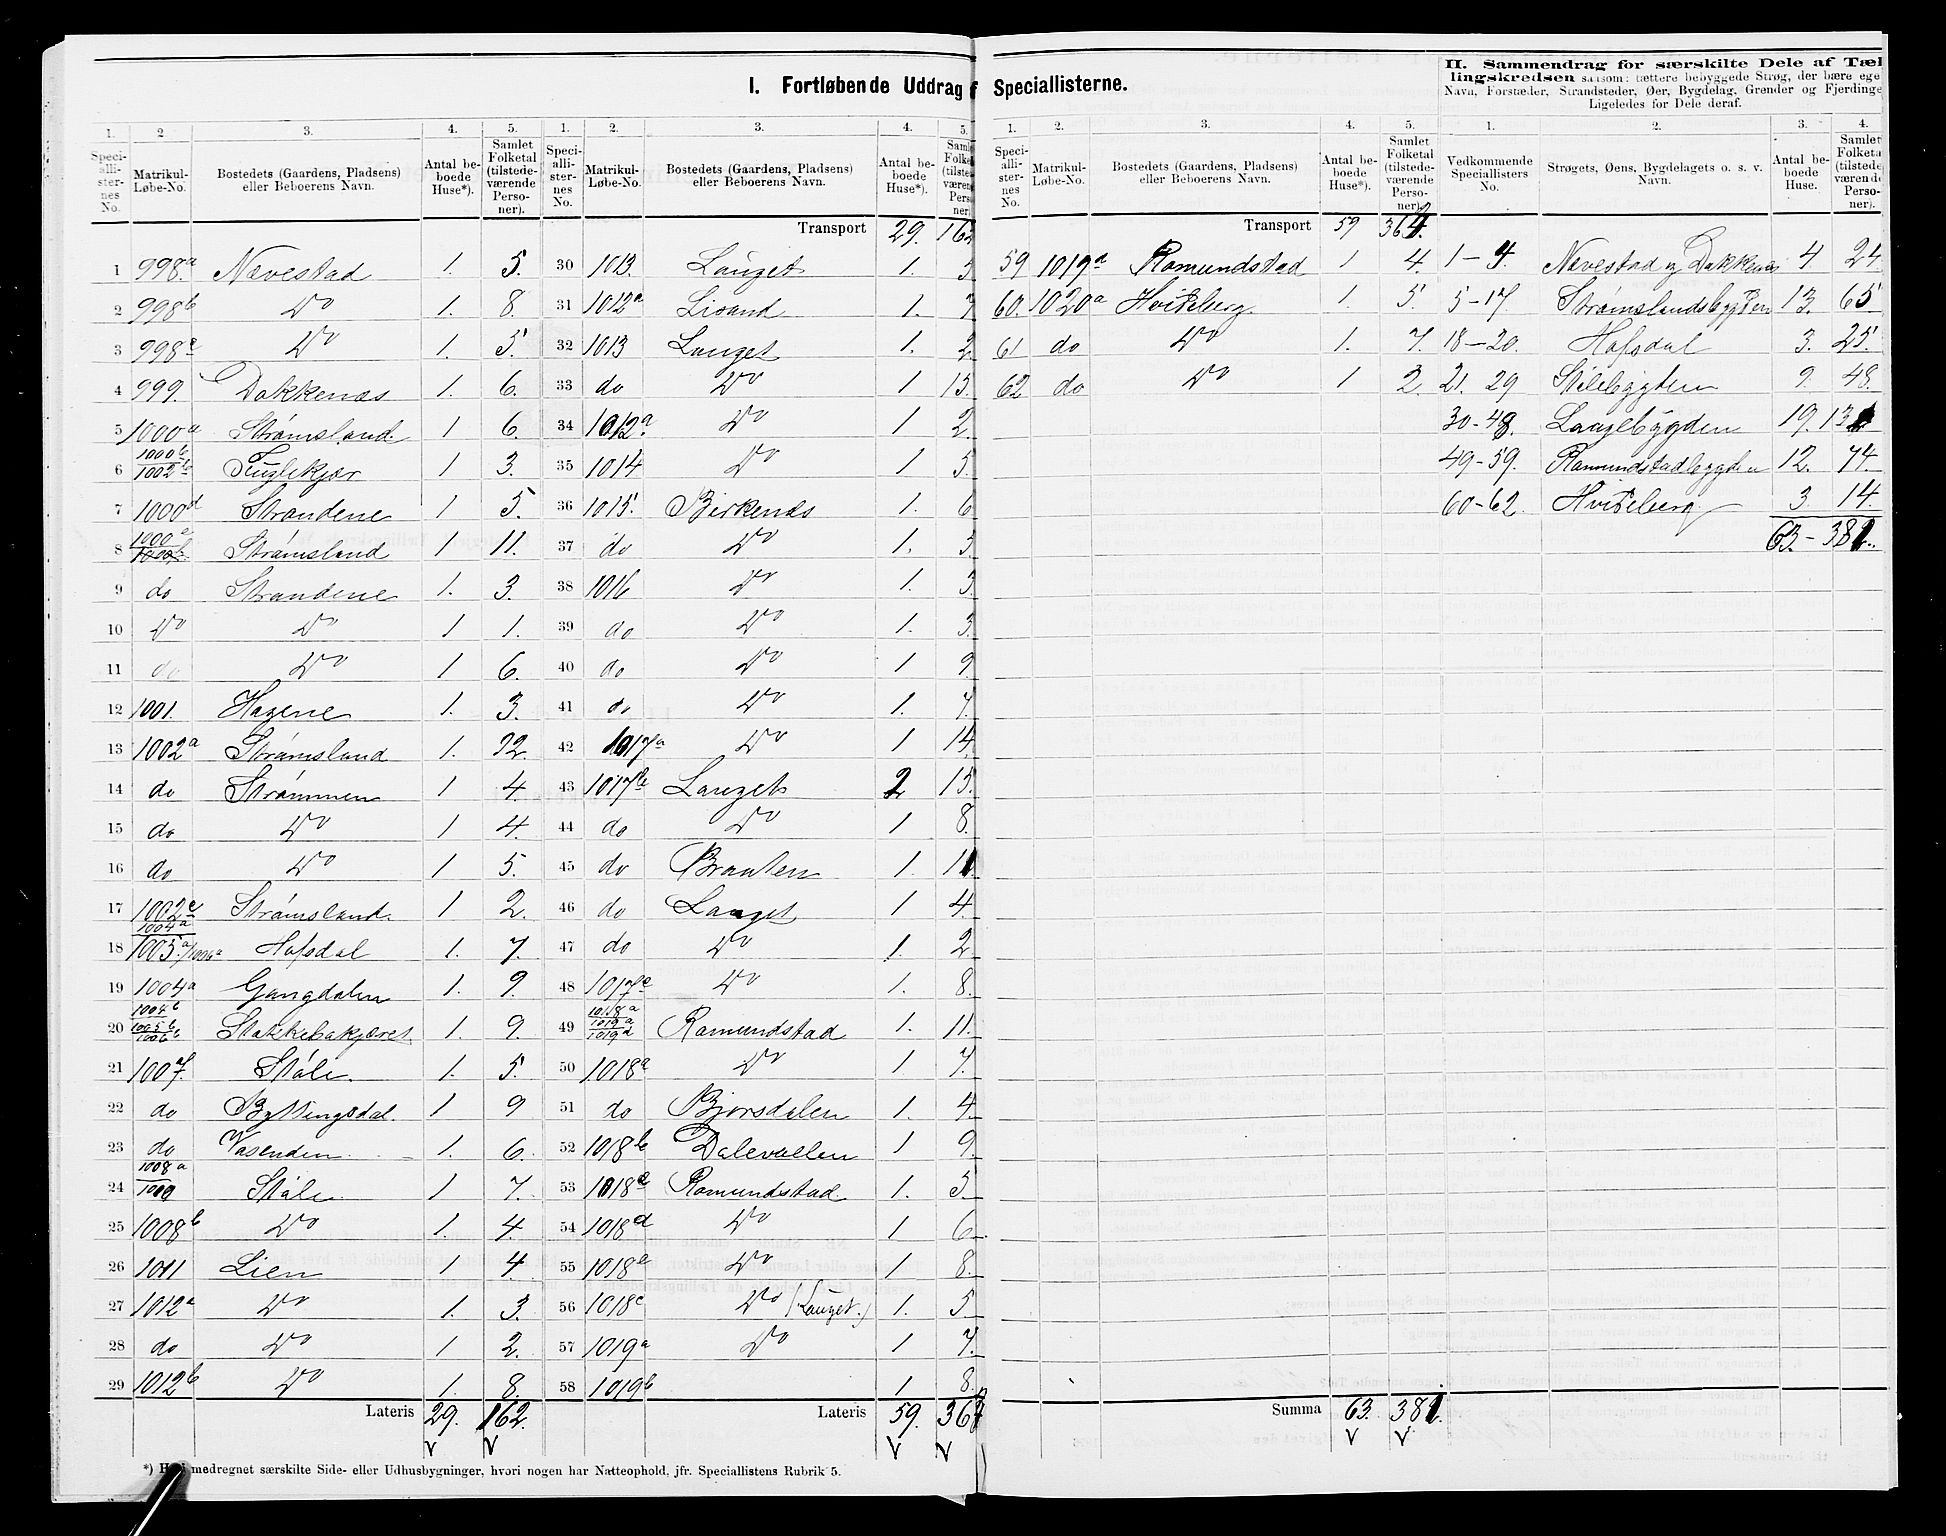 I. Fortløbende Uddrag f Speciallisterne.
1. 2 3. 4. 5.
Speciallisternes No. Matrikul-Løbe-No. Bostedets (Gaardens, Pladsens) eller Beboerens Navn. Antal beboede Huse*). Samlet Folketal (tilstedeværende Personer).
1 998a Nævestad 1. 5.
2 998b Do 1. 8.
3 998c Do 1. 5.
4 999. Dakkenæs 1. 6.
5 1000a Strømsland. 1 6.
6 1000b 1002b Fuglekjær 1 3.
7 1000d Strandene 1 5.
8 Strømsland 1 11.
9 do Strandene 1. 3.
10 Do Do 1 1.
11 do Do 1 6.
12 1001. Hagene 1. 3.
13 1002a Strømsland 1.
14 do Strømmen 1 4.
15 do Do 1 4.
16 do Do 1 5.
17 1002c Strømsland. 1 2.
18 1004a 1005a/1006a Hofsdal 1. 7.
19 1004a Gangdalen 1. 9.
20 1004b 1005b 1006b Stakkebakjæret 1. 9.
21 1007. Ståle. 1. 5.
22 do Byttingsdal. 1 9
23 do Vasenden 1. 6.
24 1008a 1009 Ståle 1 7.
25 1008b Do 1. 4.
26 1011 Lien 1 4.
27 1012a Do 1. 3.
28 do Do 1 2.
29 1012b Do 1. 8.
Lateris 29. 162.
1. 2. 3. 4. 5.
Speciallisternes No. Matrikul-Løbe-No. Bostedets (Gaardens, Pladsens) eller Beboerens Navn. Antal beboede Huse*).
Transport 29. 162
30 1013. Lauget 1.
31 1012a Lisand 1. 7
32 1013 Lauget 1. 2
33 do Do 1
34 1012a. Do 1 2
35 1014 Do 1
36 1015. Birkenæs 1. 6
37 do Do 1. 3
38 1016 Do 1. 3.
39 do Do 1. 3.
40 do Do 1 9.
41 do Do 1. 7.
42 1017a Do 1 14.
43 1017b Lauget 2
44 do Do 1 8.
45 do Braaten 1. 11
46 do Lauget 1 4.
47 do Do 1. 2
48 1017c Do 1. 8.
49 1018a 1019a 1019d Ramundstad 1. 11.
50 1018a Do 1 7.
51 do Bjorsdalen 1. 4.
52 1018b Dalevollen 1 9.
53 1018c Ramundstad. 1.
54 1018d Do 1 6
55 1018e Do 1 8.
56 1018c Do (Lauget.) 1. 5
57 1019a Do 1 7.
58 1019b 1 8.
Lateris 59.
*) medregnet særskilte Side- eller Udhusbygninger, hvori nogen har Natteophold, jfr. Speciallistens Rubrik 5.
1. 2. 3. 4. 5.
Speciallisternes No. Matrikul-Løbe-No. Bostedets (Gaardens, Pladsens) eller Beboerens Navn. Antal beboede Huse*). Samlet Folketal (tilstedeværende Personer).
Transport 59
59 1019d Ramundstad 1 4.
60. 1020a Hviteberg. 1. 5.
61 do Do 1. 7.
62 do Do 1 2.
Summa 63. 381.
II. Sammendrag for særskilte Dele af Tællingskredsen saasom: tættere bebyggede Strøg, der bære ege
Navn, Forstæder, Strandsteder, Øer, Bygdelag, Grender og Fjerdinge
Ligeledes for Dele deraf.
1. 2. 3. 4.
Vedkommende Speciallisters No. Strøgets, Øens, Bygdelagets o. s. v. Navn. Antal beboede Huse. Samlet Folketal (tilstedeværende Personer).
1-4 Nævestad og Dakkenæs 4. 24.
5-17. Strømslandsbygden 13. 65
18-20. Hofsdal 3. 25.
21. 29 Stålebygden 9. 48.
30-48. Laugebygden 19.
49-59. Ramundstadbygden 12. 74.
60-62. Hviteberg. 3. 14.
63.- 381.